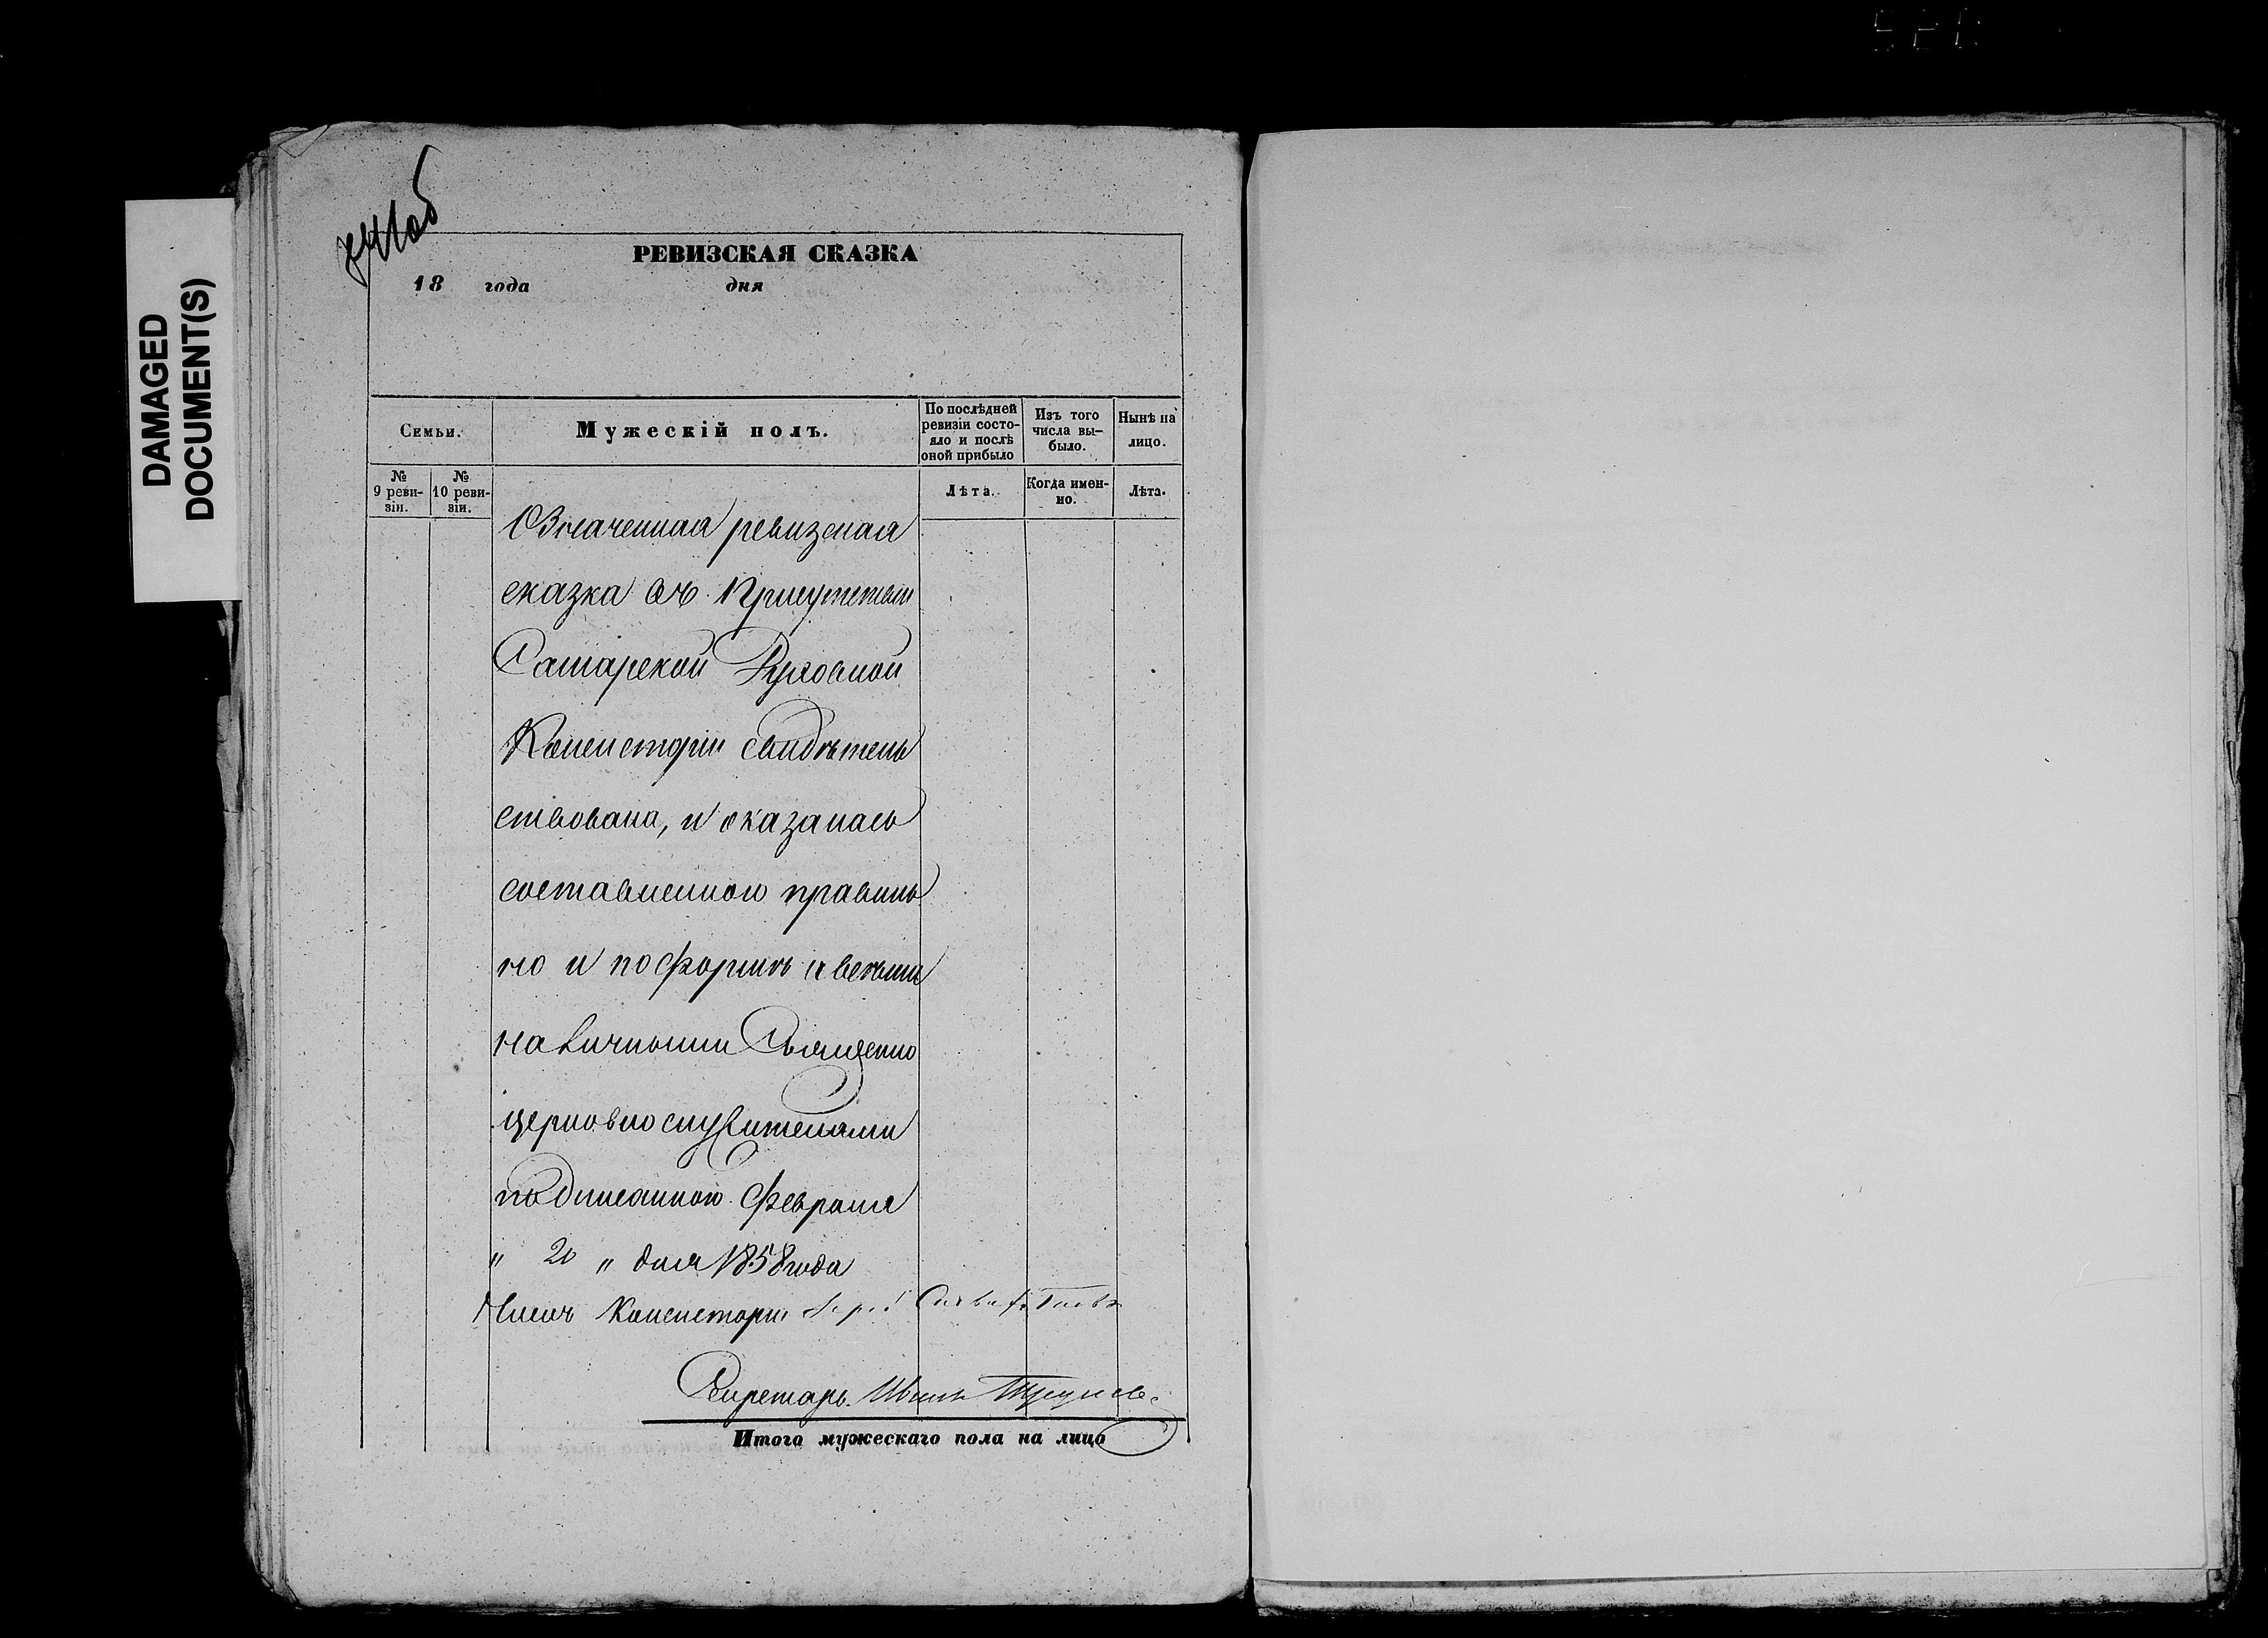 DAMAGED
DOCUMENT(S)
РЕВИЗСКАЯ СКАЗКА
18 года дня
Семьи.
Мужескій полъ.
По послѣдней
ревизіи состо-
яло и послѣ
оной прибыло
Изъ того
числа вы-
было.
Нынѣ на
лицо.
№
9 реви-
зіи.
№
10 реви-
зіи.
Лѣта.
Когда имен-
но.
Лѣта.
Означенная ревизская
сказка въ Присутствіи
Самарской Духовной
Консисторіи свидѣтель
ствована, и оказалась
составленною правиль
но и по формѣ и всѣми
наличными Священно
церковнослужителями
подписанною. Февраля
„ 20 „ дня 1858 года
Членъ Консисторіи
Секретарь Иванъ
Итого мужескаго пола на лицо